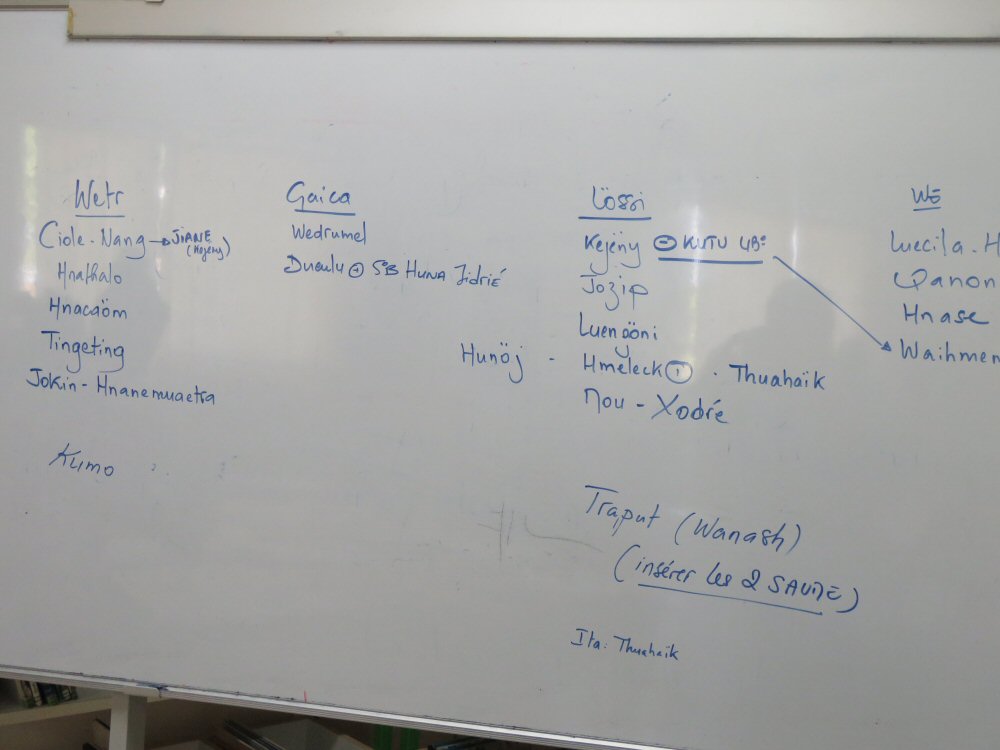 Wetr
Ciole - Nang → JIANE
(Kejeny)
Hnathalo
Hnacaöm
Tingeting
Jokin - Hnanemuaetra
Kumo
Gaica
Wedrumel
Dueulu + HUNA Jidrié
Lössi
Kejëny - KUTU
Jozip
Luengöni
Hunöj - Hmeleck · Thuahaïk
Mou - Xodré
Traput (Wanash)
(insérer les 2 SAUNE)
Ita: Thuahaïk
WE
Luecila - H
Qanon
Hnase
Waihmen